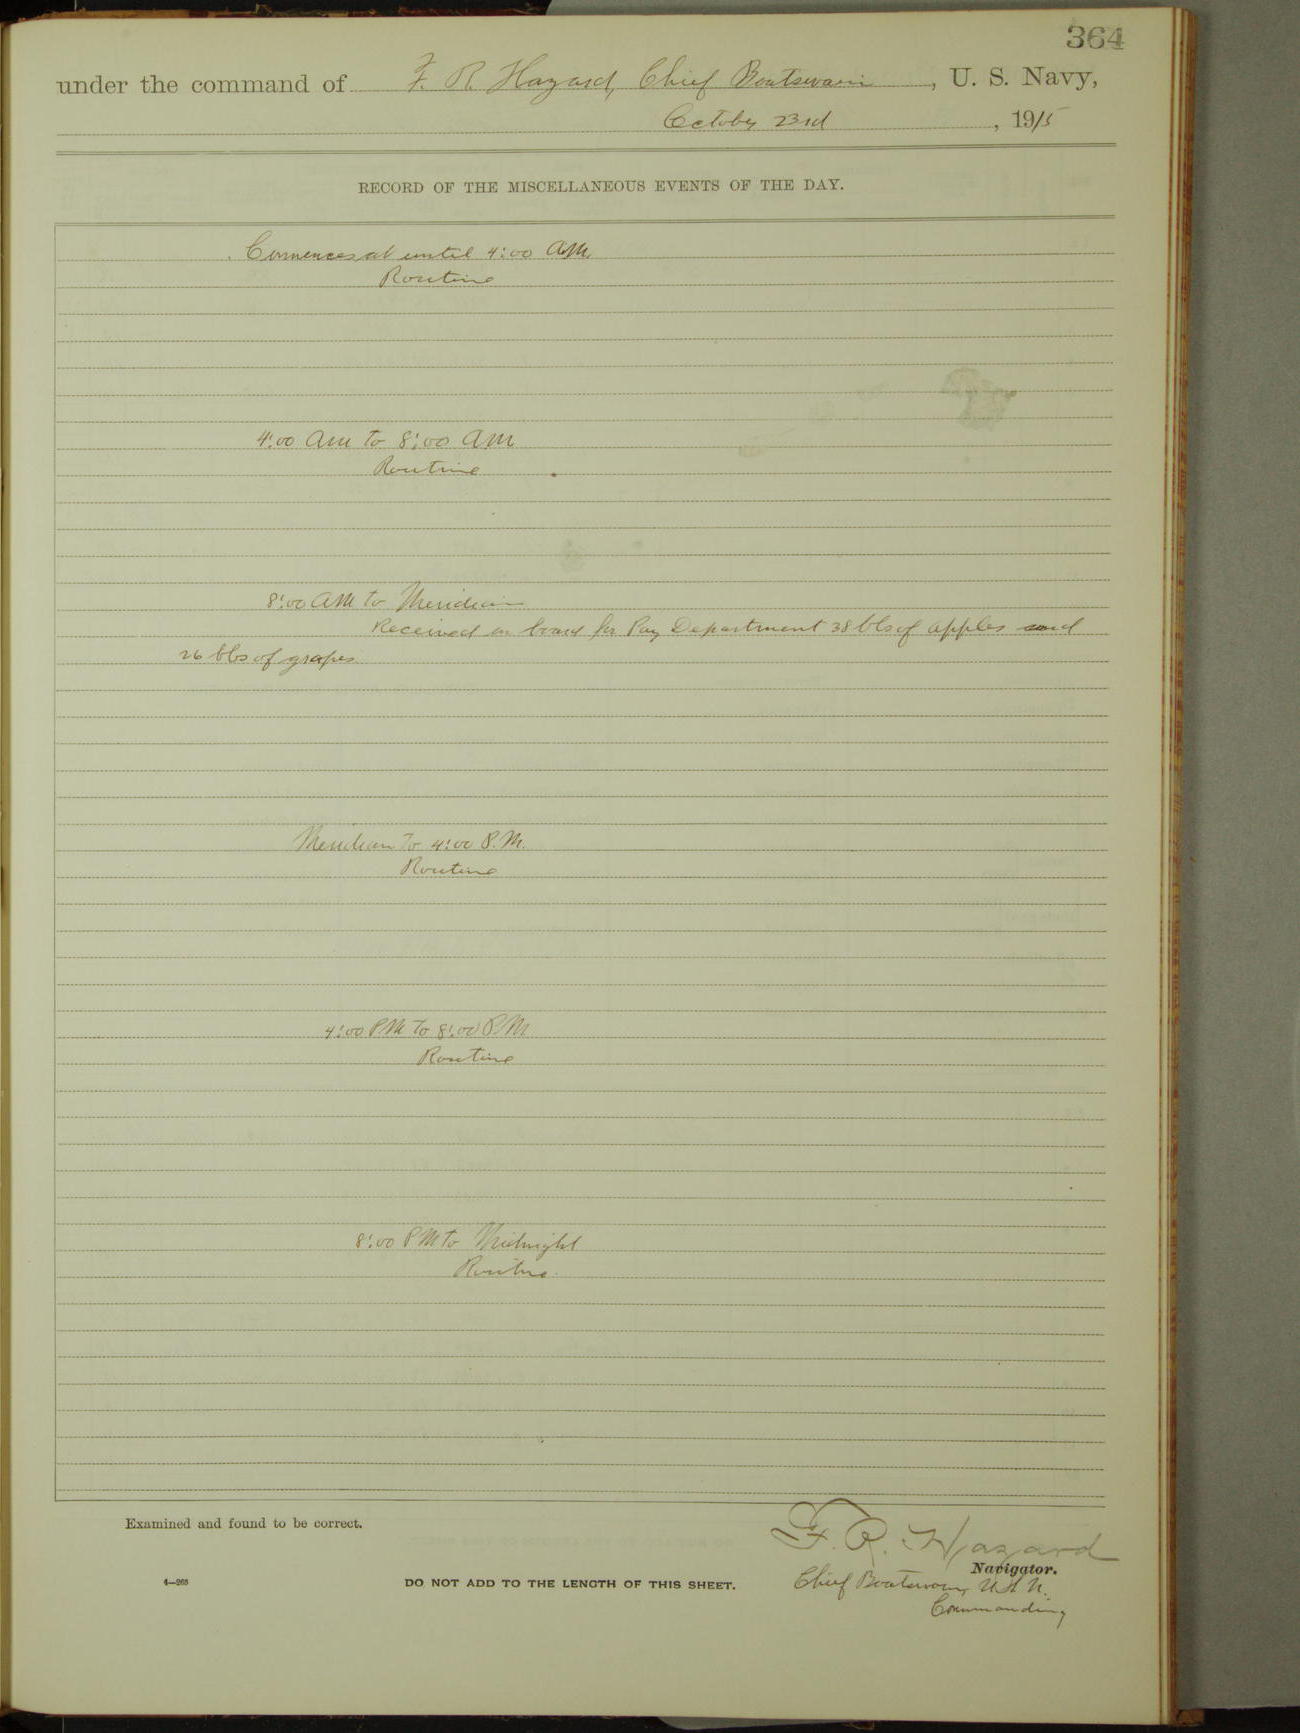 364
under the command of F. R. Hazard, Chief Boatswain, U. S. Navy,
October 23rd, 1915
RECORD OF THE MISCELLANEOUS EVENTS OF THE DAY.
Comences at until 4:00 AM.
Routine
4:00 Am to 8:00 AM
Routine
8:00 AM to Meridian
Received on board for Pay Department 38 bbls of apples and
26 bbs of grapes
Meridian To 4:00 P.M.
Routine
4:00 PM To 8:00 PM
Routine
8:00 PM to Midnight
Routine.
Examined and found to be correct.
F. R. Hazard
Navigator.
4—268
DO NOT ADD TO THE LENGTH OF THIS SHEET.
Chief Boatswain, U.S.N.
Commanding